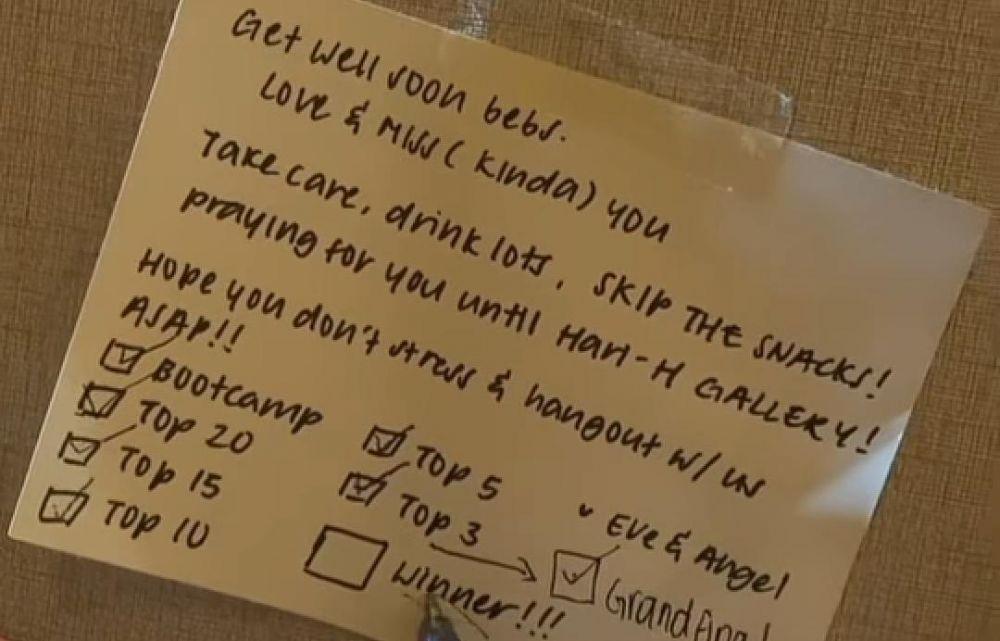 Get well soon bebs.
Love & Miss (kinda) you
Take care, drink lots, SKIP THE SNACKS!
praying for you until HARI-H GALLERY!
Hope you don't stress & hangout w/ us
ASAP!!
☑ Bootcamp
☑ TOP 20
☑ TOP 15
☑ TOP 10
☑ TOP 5
☑ TOP 3
☐ Winner!!!
Eve & Angel
☑ Grand